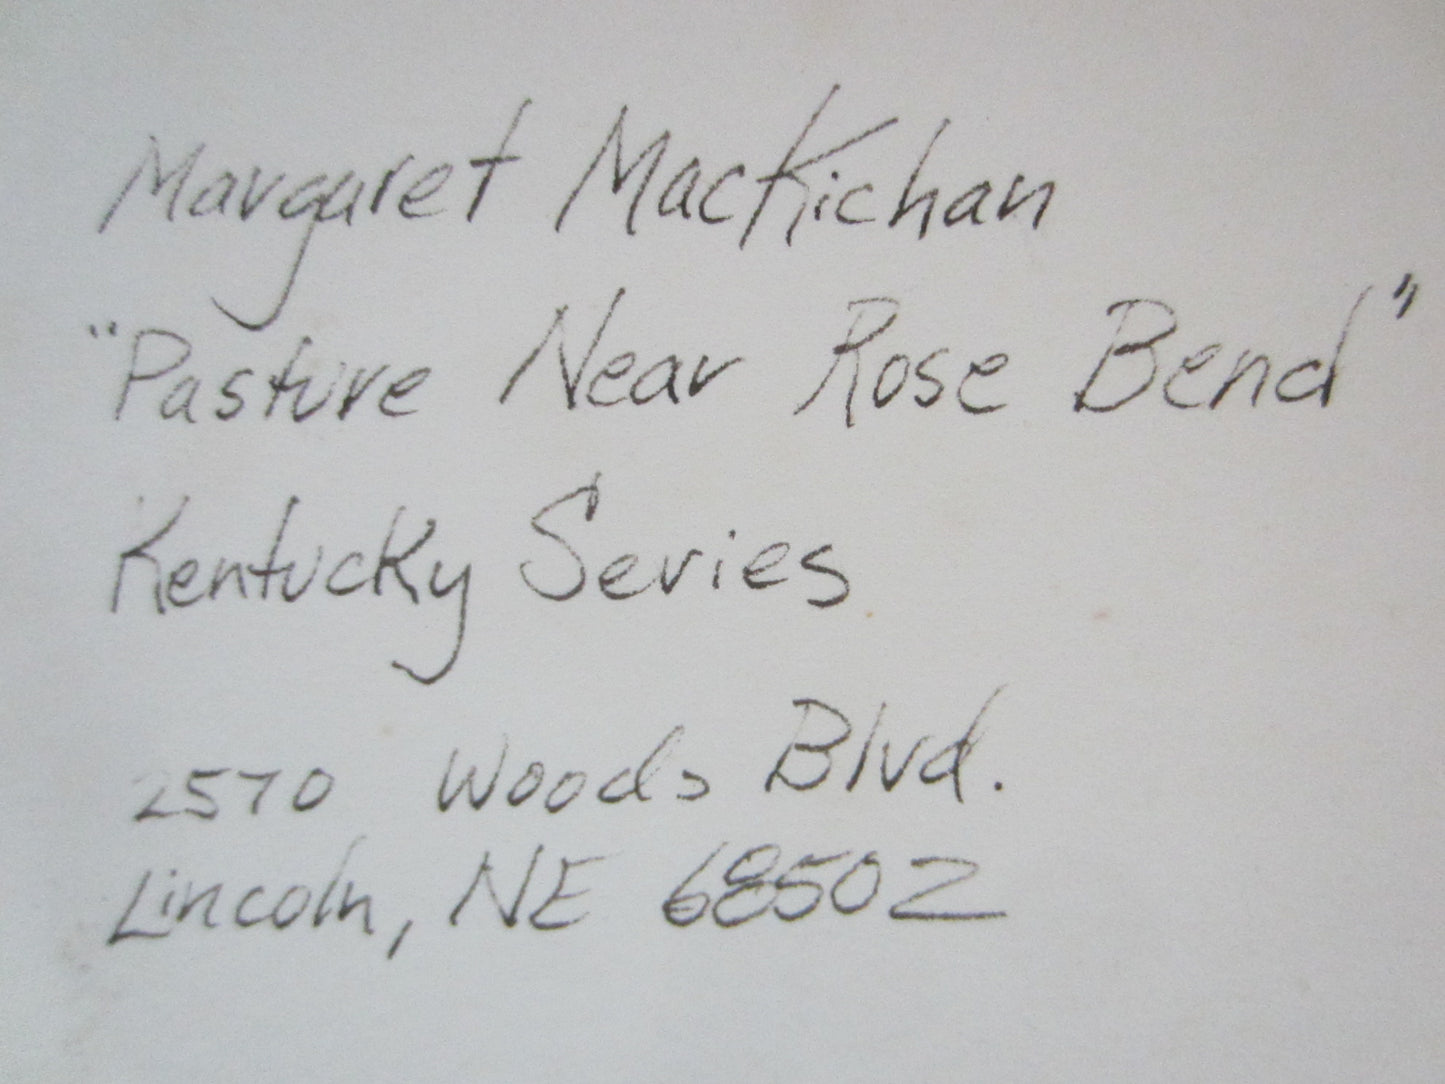 Margaret MacKichan
"Pasture Near Rose Bend"
Kentucky Series
2570 Woods Blvd.
Lincoln, NE 68502